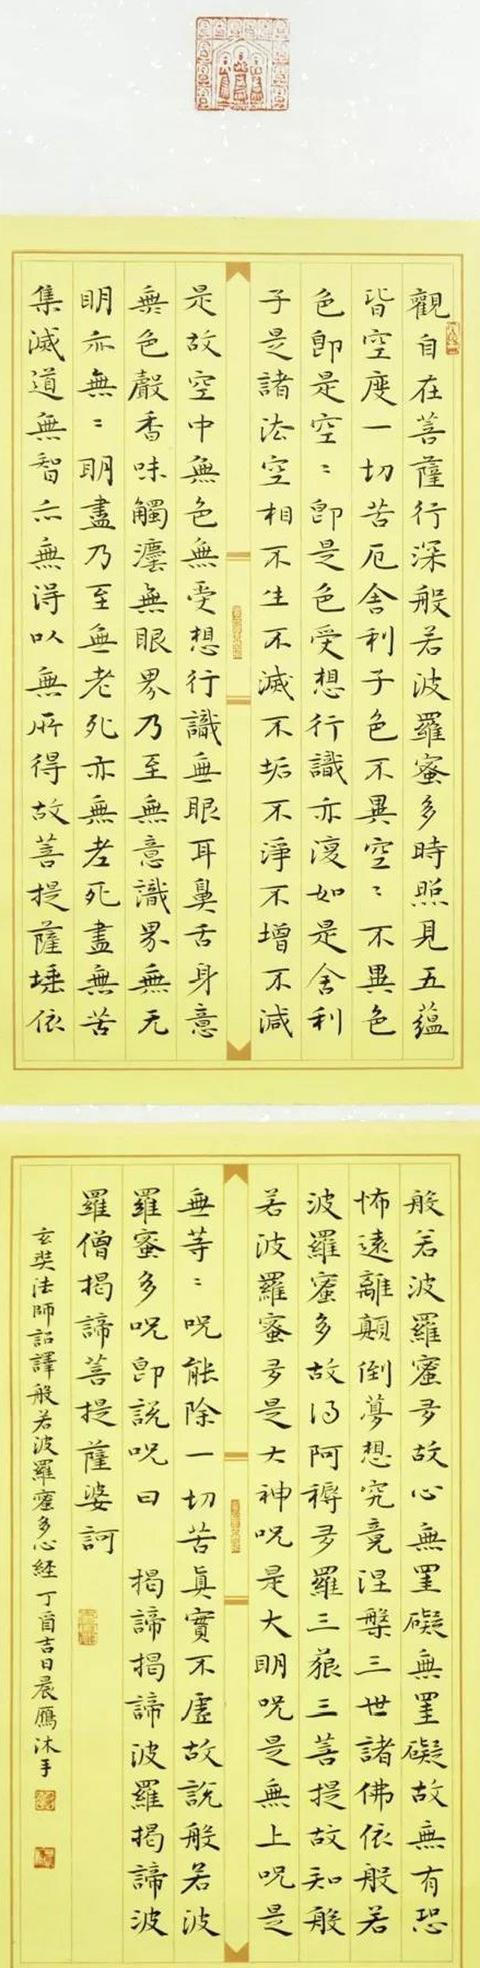 觀自在菩薩行深般若波羅蜜多時照見五蘊
皆空度一切苦厄舍利子色不異空〻不異色
色即是空〻即是色受想行識亦復如是舍利
子是諸法空相不生不滅不垢不淨不增不減
是故空中無色無受想行識無眼耳鼻舌身意
無色聲香味觸灋無眼界乃至無意識界無无
明亦無〻明盡乃至無老死亦無老死盡無苦
集滅道無智亦無得以無所得故菩提薩埵依
般若波羅蜜多故心無罣礙無罣礙故無有恐
怖遠離顛倒夢想究竟涅槃三世諸佛依般若
波羅蜜多故得阿耨多羅三藐三菩提故知般
若波羅蜜多是大神呪是大明呪是無上呪是
無等〻呪能除一切苦真實不虛故說般若波
羅蜜多呪即說呪曰 揭諦揭諦波羅揭諦波
羅僧揭諦菩提薩婆訶
玄奘法師詔譯般若波羅蜜多心経丁酉吉日晨鴈沐手